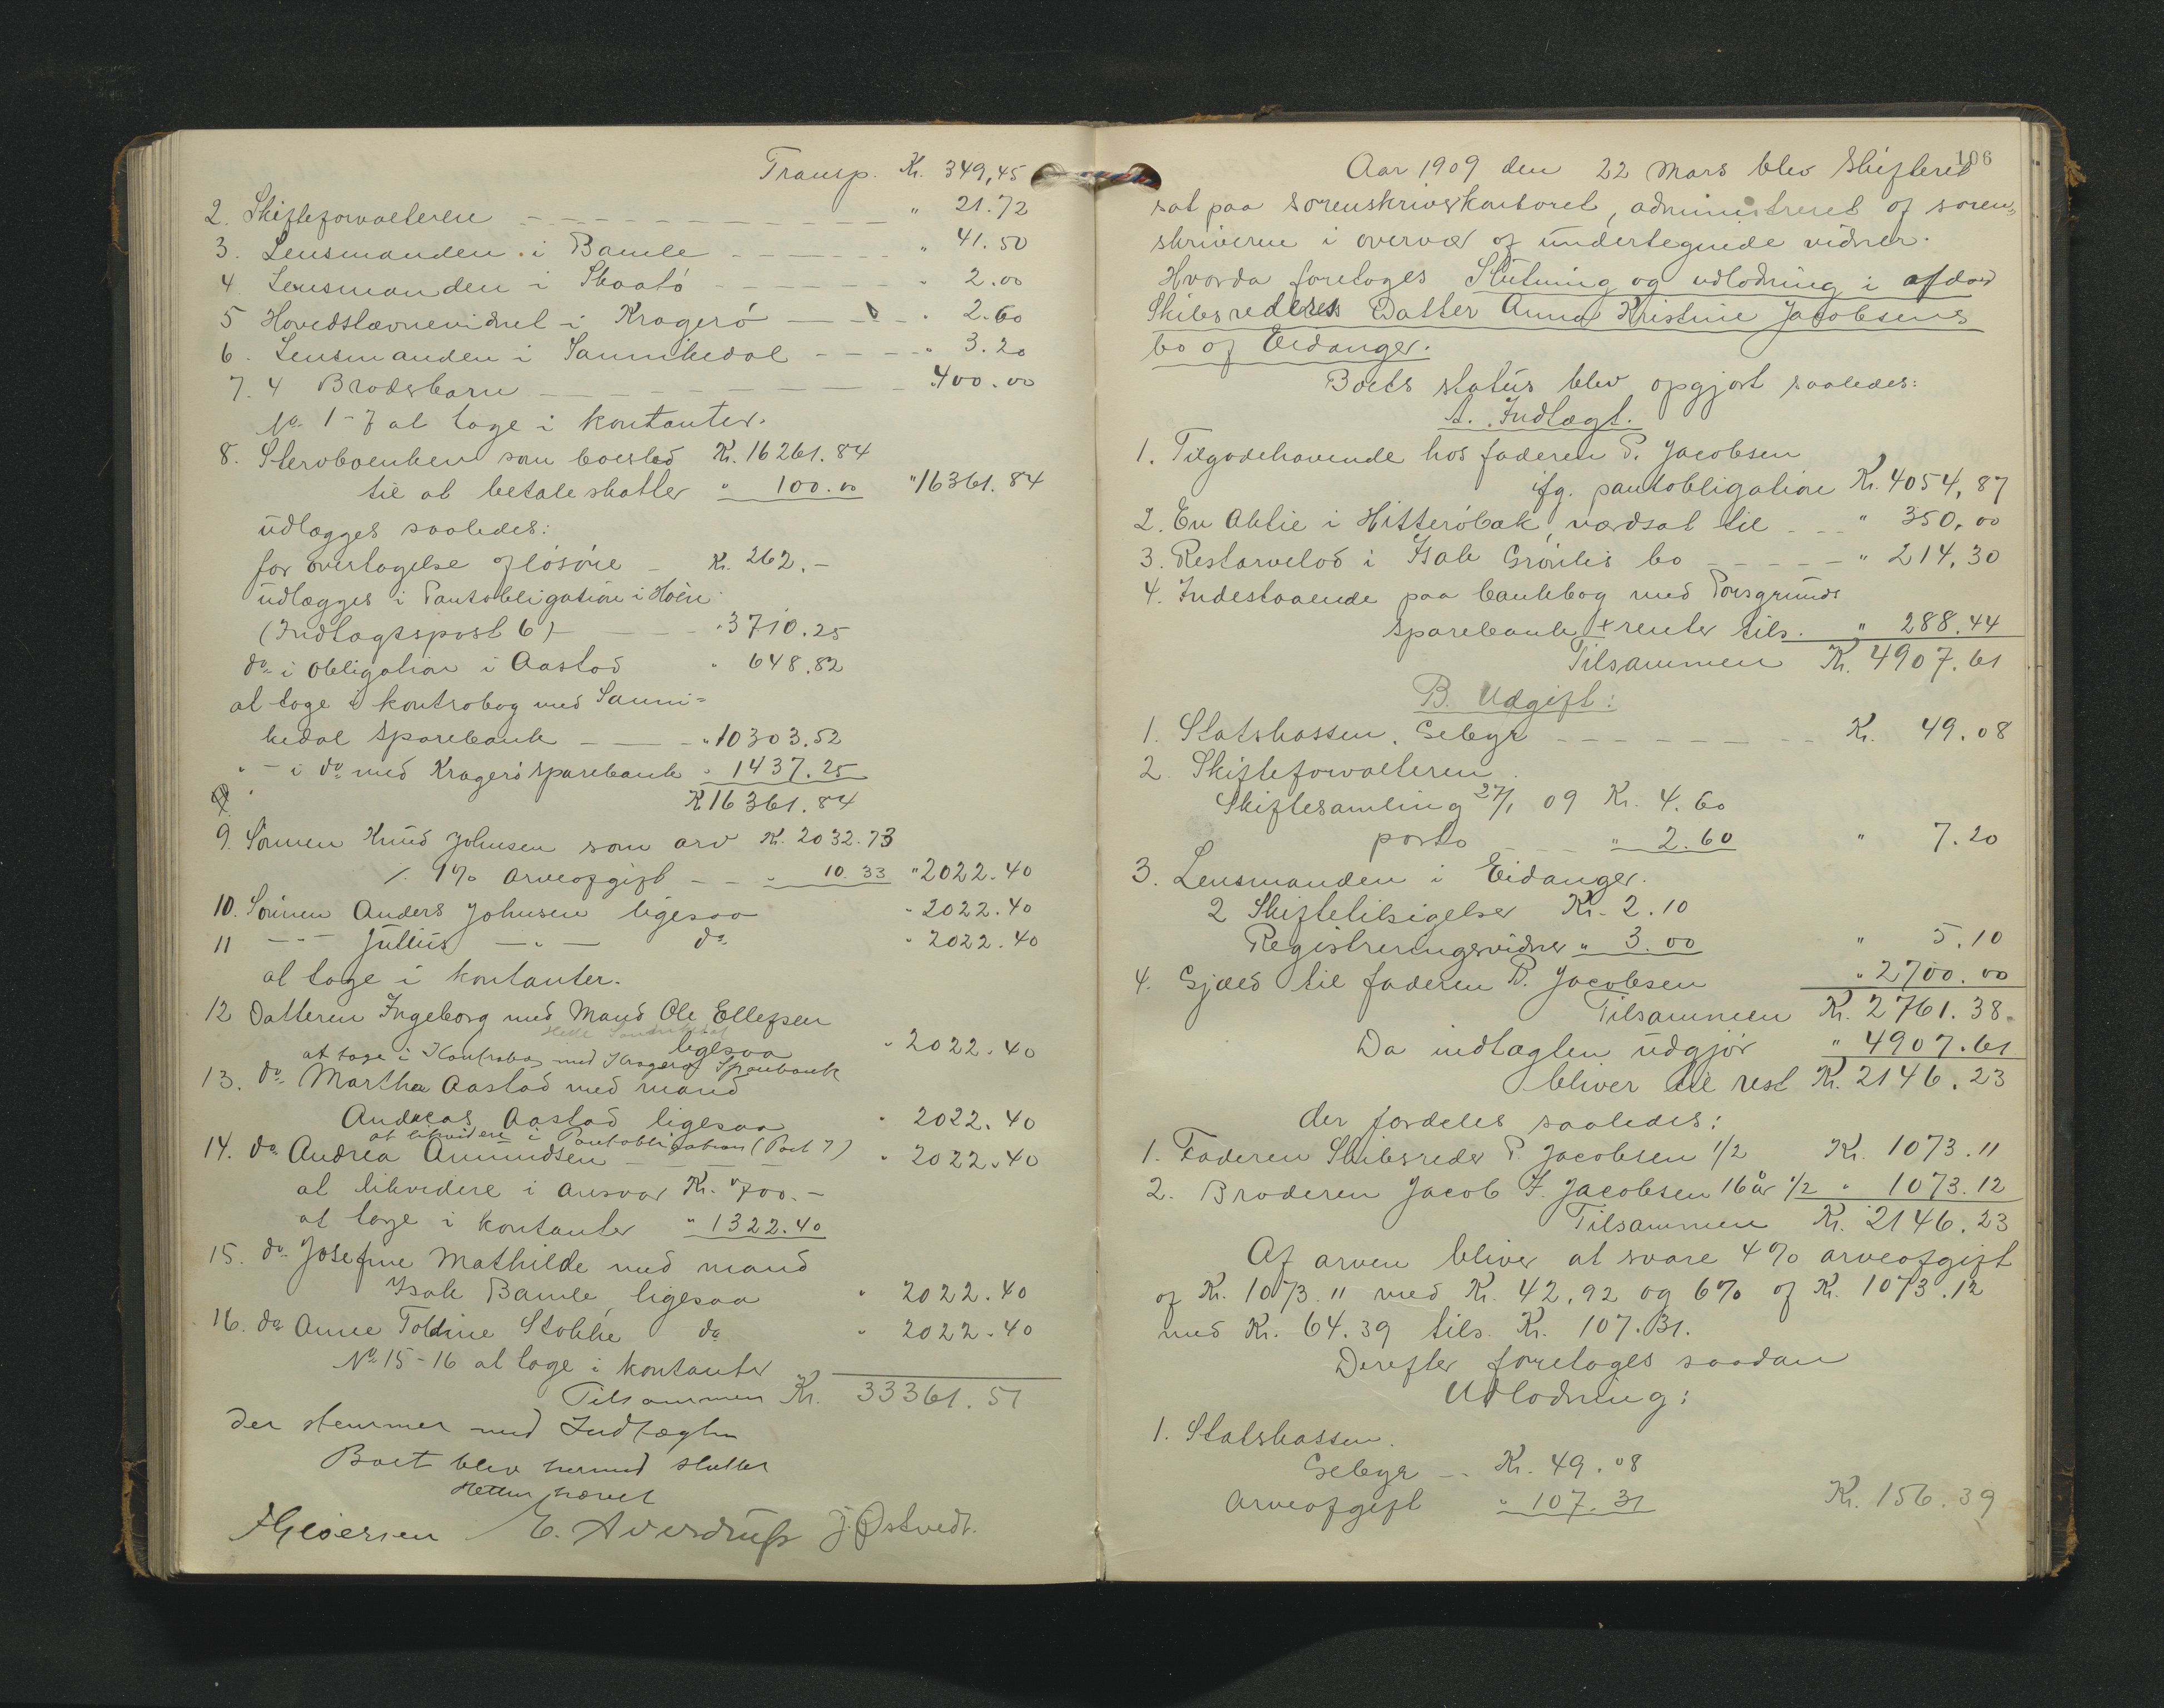 Transp. Kr. 349,45
2. Skifteforvalteren — — — " 21.72
3. Lensmanden i Bamle — — — " 41.50
4. Lensmanden i Skaatö — — — " 2.00
5 Hovedstævnevidnet i Kragerö — — " 2.60
6. Lensmanden i Sannikedal — — " 3.20
7. 4 Brodsbarn — — — 400.00
No. 1-7 at tage i kontanter.
8. Stervboenken som boeslod Kr. 16261.84
til at betale skatter " 100.00 "16361.84
udlægges saaledes:
for overtagelse af lösöre — Kr. 262.-
udlægges i Pantobligation i Höen
(Indtægtspost 6) — — "3710.25
do i obligation i Aastad " 648.82
at tage i kontrabog med Sanni=
kedal Sparebank — — "10303.52
" - i do med Kragerö Sparebank " 1437.25
K 16361.84
9. Sönnen Knud Johnsen som arv K. 2032.73
/. 1% arveafgift — — " 10.33 "2022.40
10. Sönnen Anders Johnsen ligesaa " 2022.40
11 — " — Julius — " — do " 2022.40
at tage i kontanter.
12 Datteren Ingeborg med Mand Ole Ellefsen
ligesaa " 2022.40
at tage i Kontrabog med Kragerø Sparebank
13. do Martha Aastad med mand
Andreas Aastad ligesaa " 2022.40
at likvidere i Pantobligation (Post 7)
14. do Andrea Amundsen — — — " 2022.40
at likvidere i ansvar Kr. 700.-
at tage i kontanter " 1322.40
15. do Josefine Mathilde med mand
Isak Bamle, ligesaa " 2022.40
16. do Anne Toldine Stokke do " 2022.40
No. 15-16 at tage i kontanter
Tilsammen Kr. 33361.51
der stemmer med Indtægten
Boet blev hermed sluttet
Retten hævet
E. Aversdrup J. Østvedt.
106
Aar 1909 den 22 Mars blev Skifteret
sat paa sorenskriverkontoret, administreret af soren=
skriveren i overvær af undertegnede vidner.
Hvorda foretoges Slutning og udlodning i afdöd
Skibsreders Datter Anna Kristine Jacobsens
bo af Eidanger.
Boets status blev opgjort saaledes:
A. Indtægt.
1. Tilgodehavende hos faderen P. Jacobsen
ifg. pantobligation Kr. 4054,87
2. En Aktie i Hitteröbak, værdsat til — " 350,00
3. Restarvelod i Isak Grönlis bo — — — " 214,30
4. Indestaaende paa bankbog med Porsgrunds
Sparebank + renter tils. " 288.44
Tilsammen Kr. 4907.61
B. Udgift:
1. Statskassen, Gebyr — — — Kr. 49.08
2. Skifteforvalteren.
Skiftesamling 27/1 09 Kr. 4.60
porto — — " 2.60 " 7.20
3. Lensmanden i Eidanger.
2 Skiftetilsigelser Kr. 2.10
Registreringsvidner " 3.00 " 5.10
4. Gjæld til faderen P. Jacobsen " 2700.00
Tilsammen Kr. 2761.38.
Da indtægten udgjör " 4907.61
bliver til rest Kr. 2146.23
der fordeles saaledes:
1. Faderen Skibsreder P. Jacobsen 1/2 Kr. 1073.11
2. Broderen Jacob F. Jacobsen 16 år 1/2 " 1073.12
Tilsammen Kr. 2146.23
Af arven bliver at svare 4% arveafgift
af Kr. 1073.11 med Kr. 42,92 og 6% af Kr. 1073.12
med Kr. 64.39 tils. Kr. 107.31.
Derefter foretoges saadan
Udlodning:
1. Statskassen.
Gebyr — Kr. 49.08
Arveafgift " 107.31 Kr. 156.39